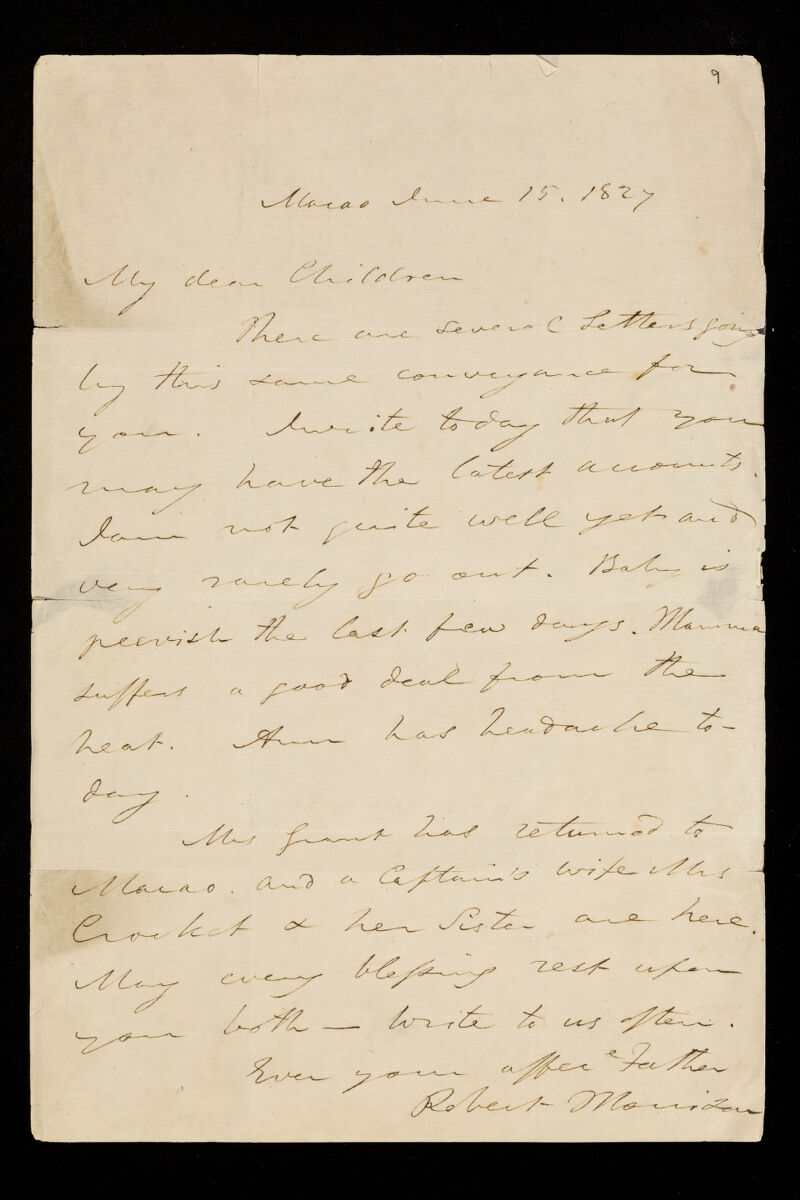 9
Macao June 15. 1827
My dear Children
There are several Letters going
by this same conveyance for
you. I write today that you
may have the latest accounts.
I am not quite well yet and
very rarely go out. Baby is
peevish the last few days. Mamma
suffers a good deal from the
heat. Ann has headache to-
day.
Mrs Grant has returned to
Macao. and a Captain's wife Mrs
Crocket & her Sister are here.
May every blessing rest upon
you both — Write to us often.
Ever your affece Father
Robert Morrison